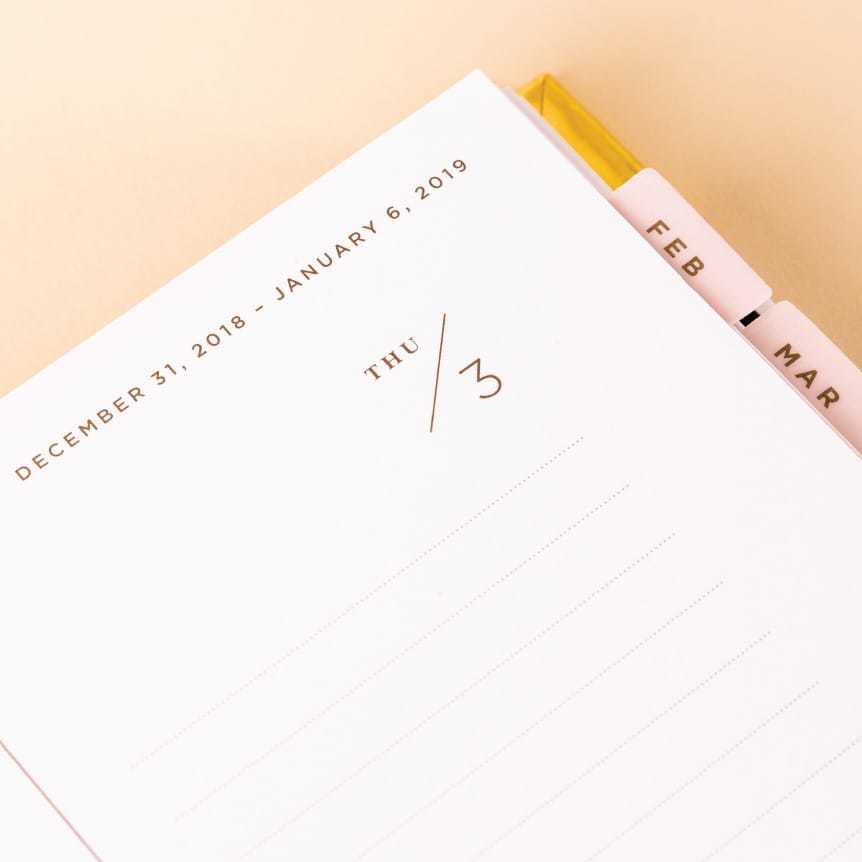 DECEMBER 31, 2018 – JANUARY 6, 2019
THU / 3
FEB
MAR